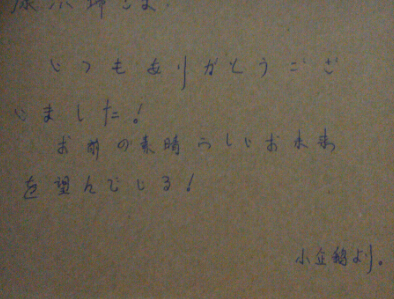 いつもありがとうござ
いました!
お前の素晴らしいお未来
を望んでしる!
小立
より。